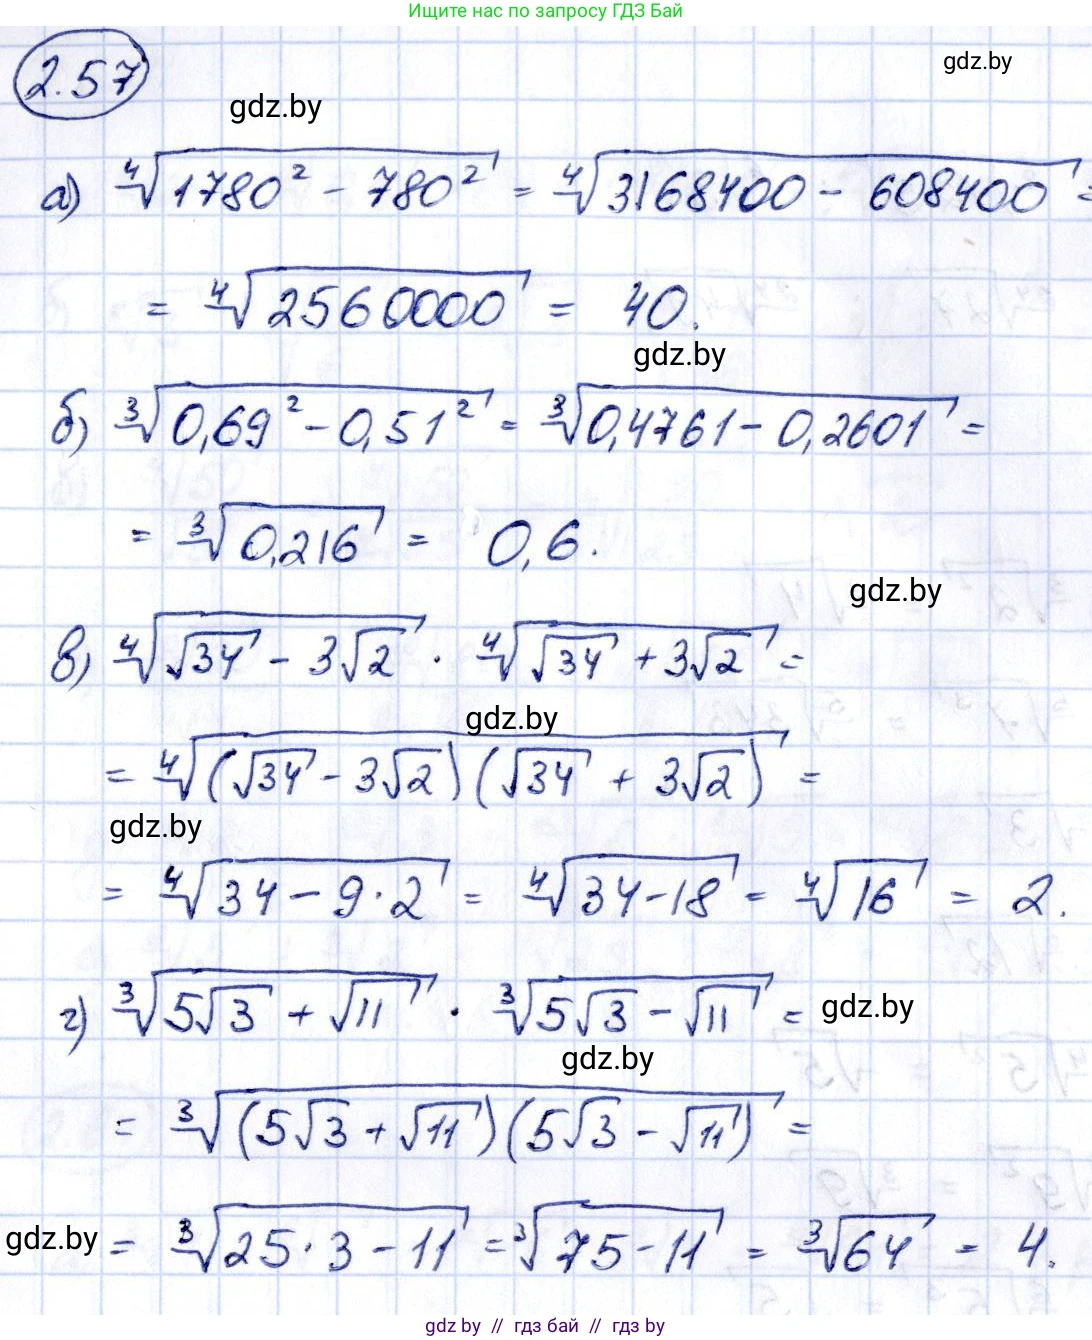 Ищите нас по запросу ГДЗ Бай
2.57
gdz.by
gdz.by
а) ⁴√(1780² - 780²) = ⁴√(3168400 - 608400) =
= ⁴√2560000 = 40.
gdz.by
б) ³√(0,69² - 0,51²) = ³√(0,4761 - 0,2601) =
= ³√0,216 = 0,6.
gdz.by
в) ⁴√(√34 - 3√2) · ⁴√(√34 + 3√2) =
gdz.by
= ⁴√((√34 - 3√2)(√34 + 3√2)) =
gdz.by
= ⁴√(34 - 9·2) = ⁴√(34 - 18) = ⁴√16 = 2.
г) ³√(5√3 + √11) · ³√(5√3 - √11) =
gdz.by
gdz.by
= ³√((5√3 + √11)(5√3 - √11)) =
gdz.by
= ³√(25·3 - 11) = ³√(75 - 11) = ³√64 = 4.
gdz.by // гдз бай // gdz by